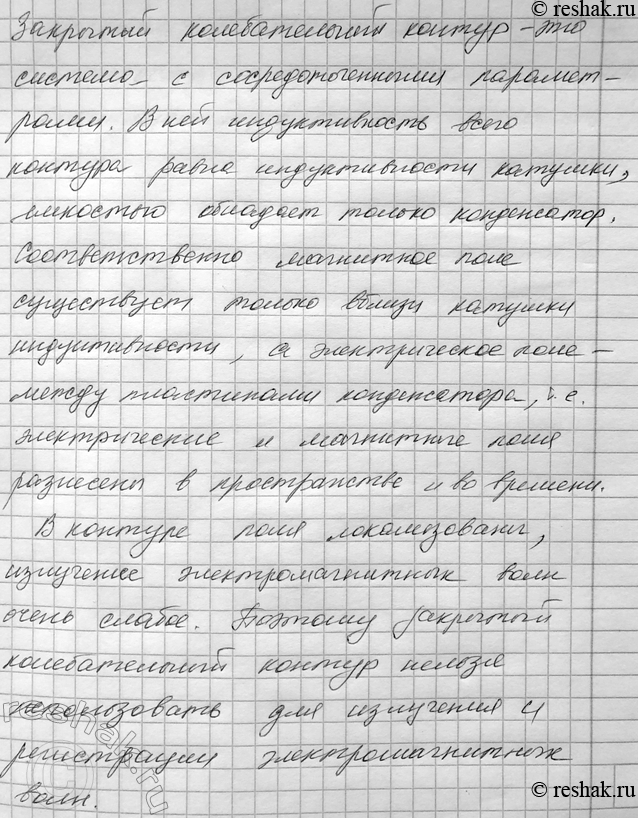 © reshak.ru
Закрытый колебательный контур - это
система с сосредоточенными парамет-
рами. В ней индуктивность всего
контура равна индуктивности катушки,
ёмкостью обладает только конденсатор.
Соответственно магнитное поле
существует только вблизи катушки
индуктивности, а электрическое поле -
между пластинами конденсатора, т.е.
электрические и магнитные поля
разнесены в пространстве и во времени.
В контуре поля локализованы,
излучение электромагнитных волн
очень слабое. Поэтому закрытый
колебательный контур нельзя
использовать для излучения и
регистрации электромагнитных
волн.
reshak.ru
© reshak.ru